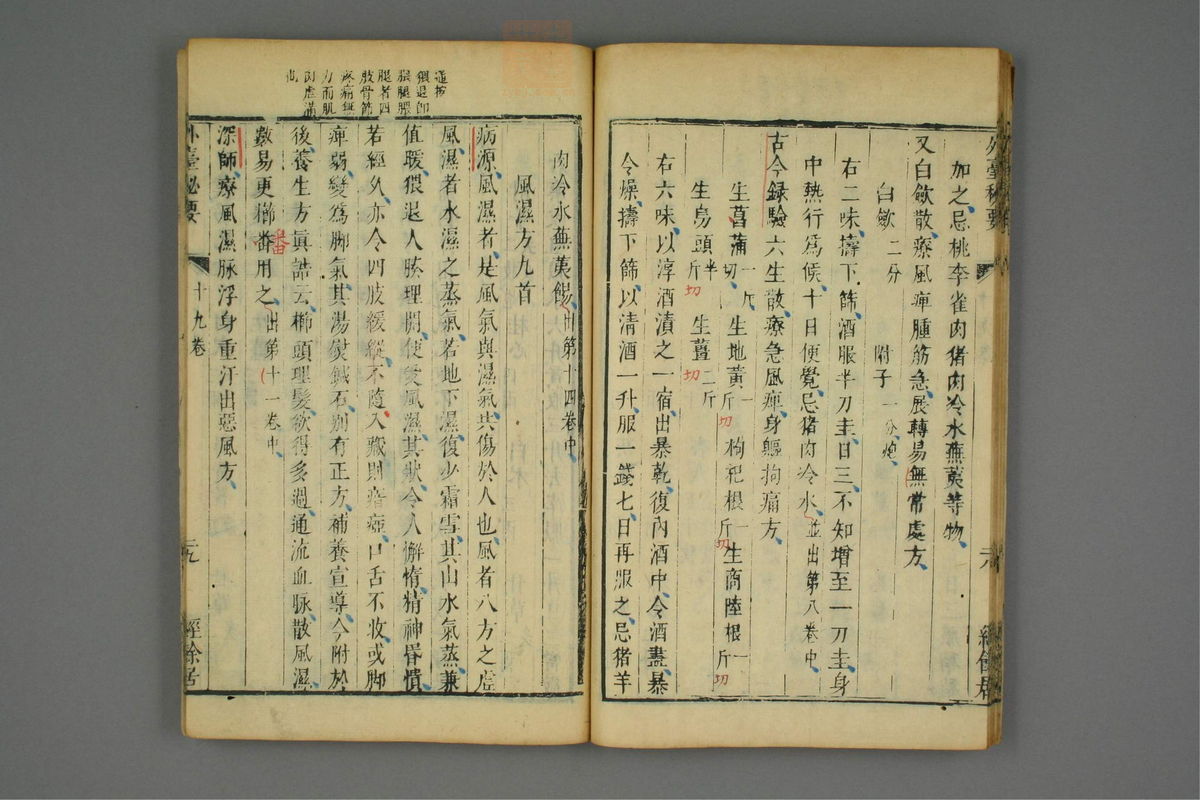 加之忌桃李雀肉猪肉冷水蕪荑等物
又白歛散療風痺腫筋急展轉易無常處方
白歛二分 附子一分炮
右二味擣下篩酒服半刀圭日三不知增至一刀圭身
中熱行爲候十日便覺忌猪肉冷水並出第八卷中
古今録驗六生散療急風痺身軀拘痛方
生菖蒲一斤切 生地黃一斤切 枸杞根一斤切 生商陸根一斤切
生烏頭半斤切 生薑二斤切
右六味以淳酒漬之一宿出暴乾復內酒中令酒盡暴
令燥擣下篩以清酒一升服一錢七日再服之忌猪羊
肉冷水蕪荑餳出第十四卷中
風濕方九首
病源風濕者是風氣與濕氣共傷於人也風者八方之虛
風濕者水濕之蒸氣若地下濕復少霜雪其山水氣蒸兼
值暖猥退人腠理開便受風濕其狀令人懈惰精神昏憒
若經久亦令四肢緩縱不隨入臟則瘖瘂口舌不收或脚
痺弱變爲脚氣其湯熨鍼石別有正方補養宣導今附於
後養生方眞誥云櫛頭理髮欲得多過通流血脉散風濕
數易更櫛番用之出第十一卷中
番
深師療風濕脉浮身重汗出惡風方
外臺秘要
十九卷
二九
經餘居
外臺秘要
腿者四
肢骨節
疼痛無
力而肌
肉虛滿
也